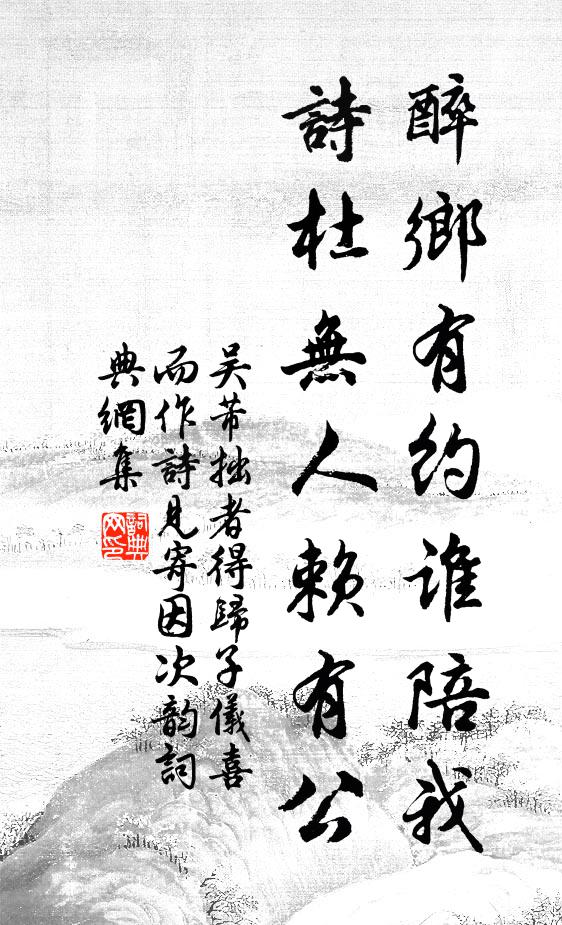 醉鄉有約誰陪我
詩社無人賴有公
吳芾拙者得歸子儀喜
而作詩見寄因次韵詞
典網集
詞典
网印